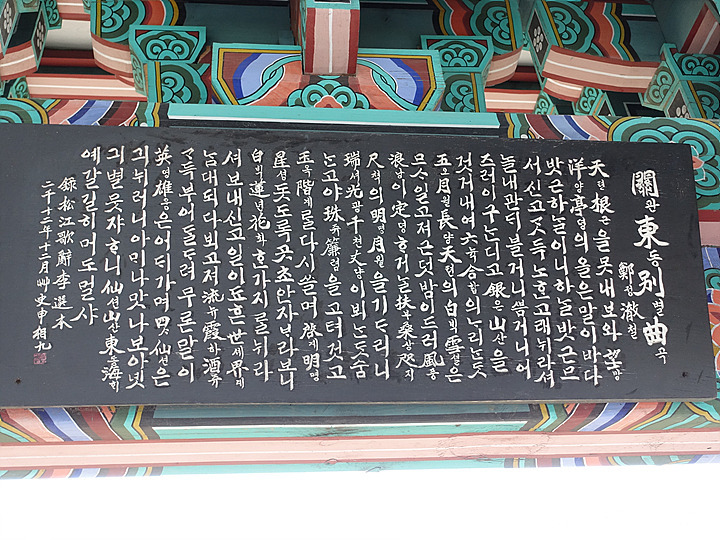 關관東동別별曲곡
鄭정澈철
天텬根근을못내보와望망
洋양亭뎡의올은말이바다
밧근하ᄂᆞᆯ이니하ᄂᆞᆯ밧근므
서신고ᄀᆞᆺ득노ᄒᆞᆫ고래뉘라셔
놀내관ᄃᆡ블거니ᄲᅳᆷ거니어
즈러이구ᄂᆞᆫ디고銀은山산을
것거내여六뉵合합의ᄂᆞ리ᄂᆞᆫᄃᆞᆺ
五오月월長댱天텬의白ᄇᆡᆨ雪셜은
므ᄉᆞ일고져근덧밤이드러風풍
浪낭이定뎡ᄒᆞ거ᄂᆞᆯ扶부桑상咫지
尺쳑의明명月월을기ᄃᆞ리니
瑞셔光광千쳔丈댱이뵈ᄂᆞᆫᄃᆞᆺ숨
ᄂᆞᆫ고야珠쥬簾렴을고텨것고
玉옥階계ᄅᆞᆯ다시쓸며啓계明명
星셩돗도록곳초안자ᄇᆞ라보니
白ᄇᆡᆨ蓮년花화ᄒᆞᆫ가지ᄅᆞᆯ뉘라
셔보내신고일이됴흔世세界계
ᄂᆞᆷ대되다뵈고져流뉴霞하酒쥬
ᄀᆞ득부어ᄃᆞᆯᄃᆞ려무론말이
英영雄웅은어ᄃᆡ가며四ᄉᆞ仙션은
긔뉘러니아ᄆᆡ나맛나보아녯
긔별뭇쟈ᄒᆞ니仙션山산東동海ᄒᆡ
예갈길히머도멀샤
錄松江歌辭李選本
二千十二年十二月艸史申相九